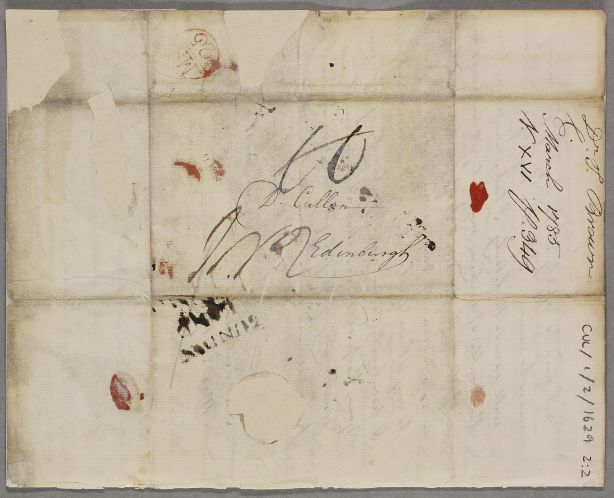 Dr Cullen
Edinburgh
Dr P. Brown
March 1785
V XVI P. 349
CUL/1/2/1629 2:2